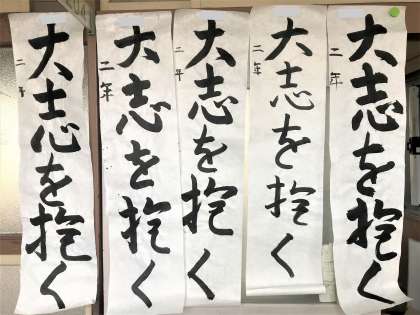 大志を抱く
二年
大志を抱く
二年
大志を抱く
二年
大志を抱く
二年
大志を抱く
二年